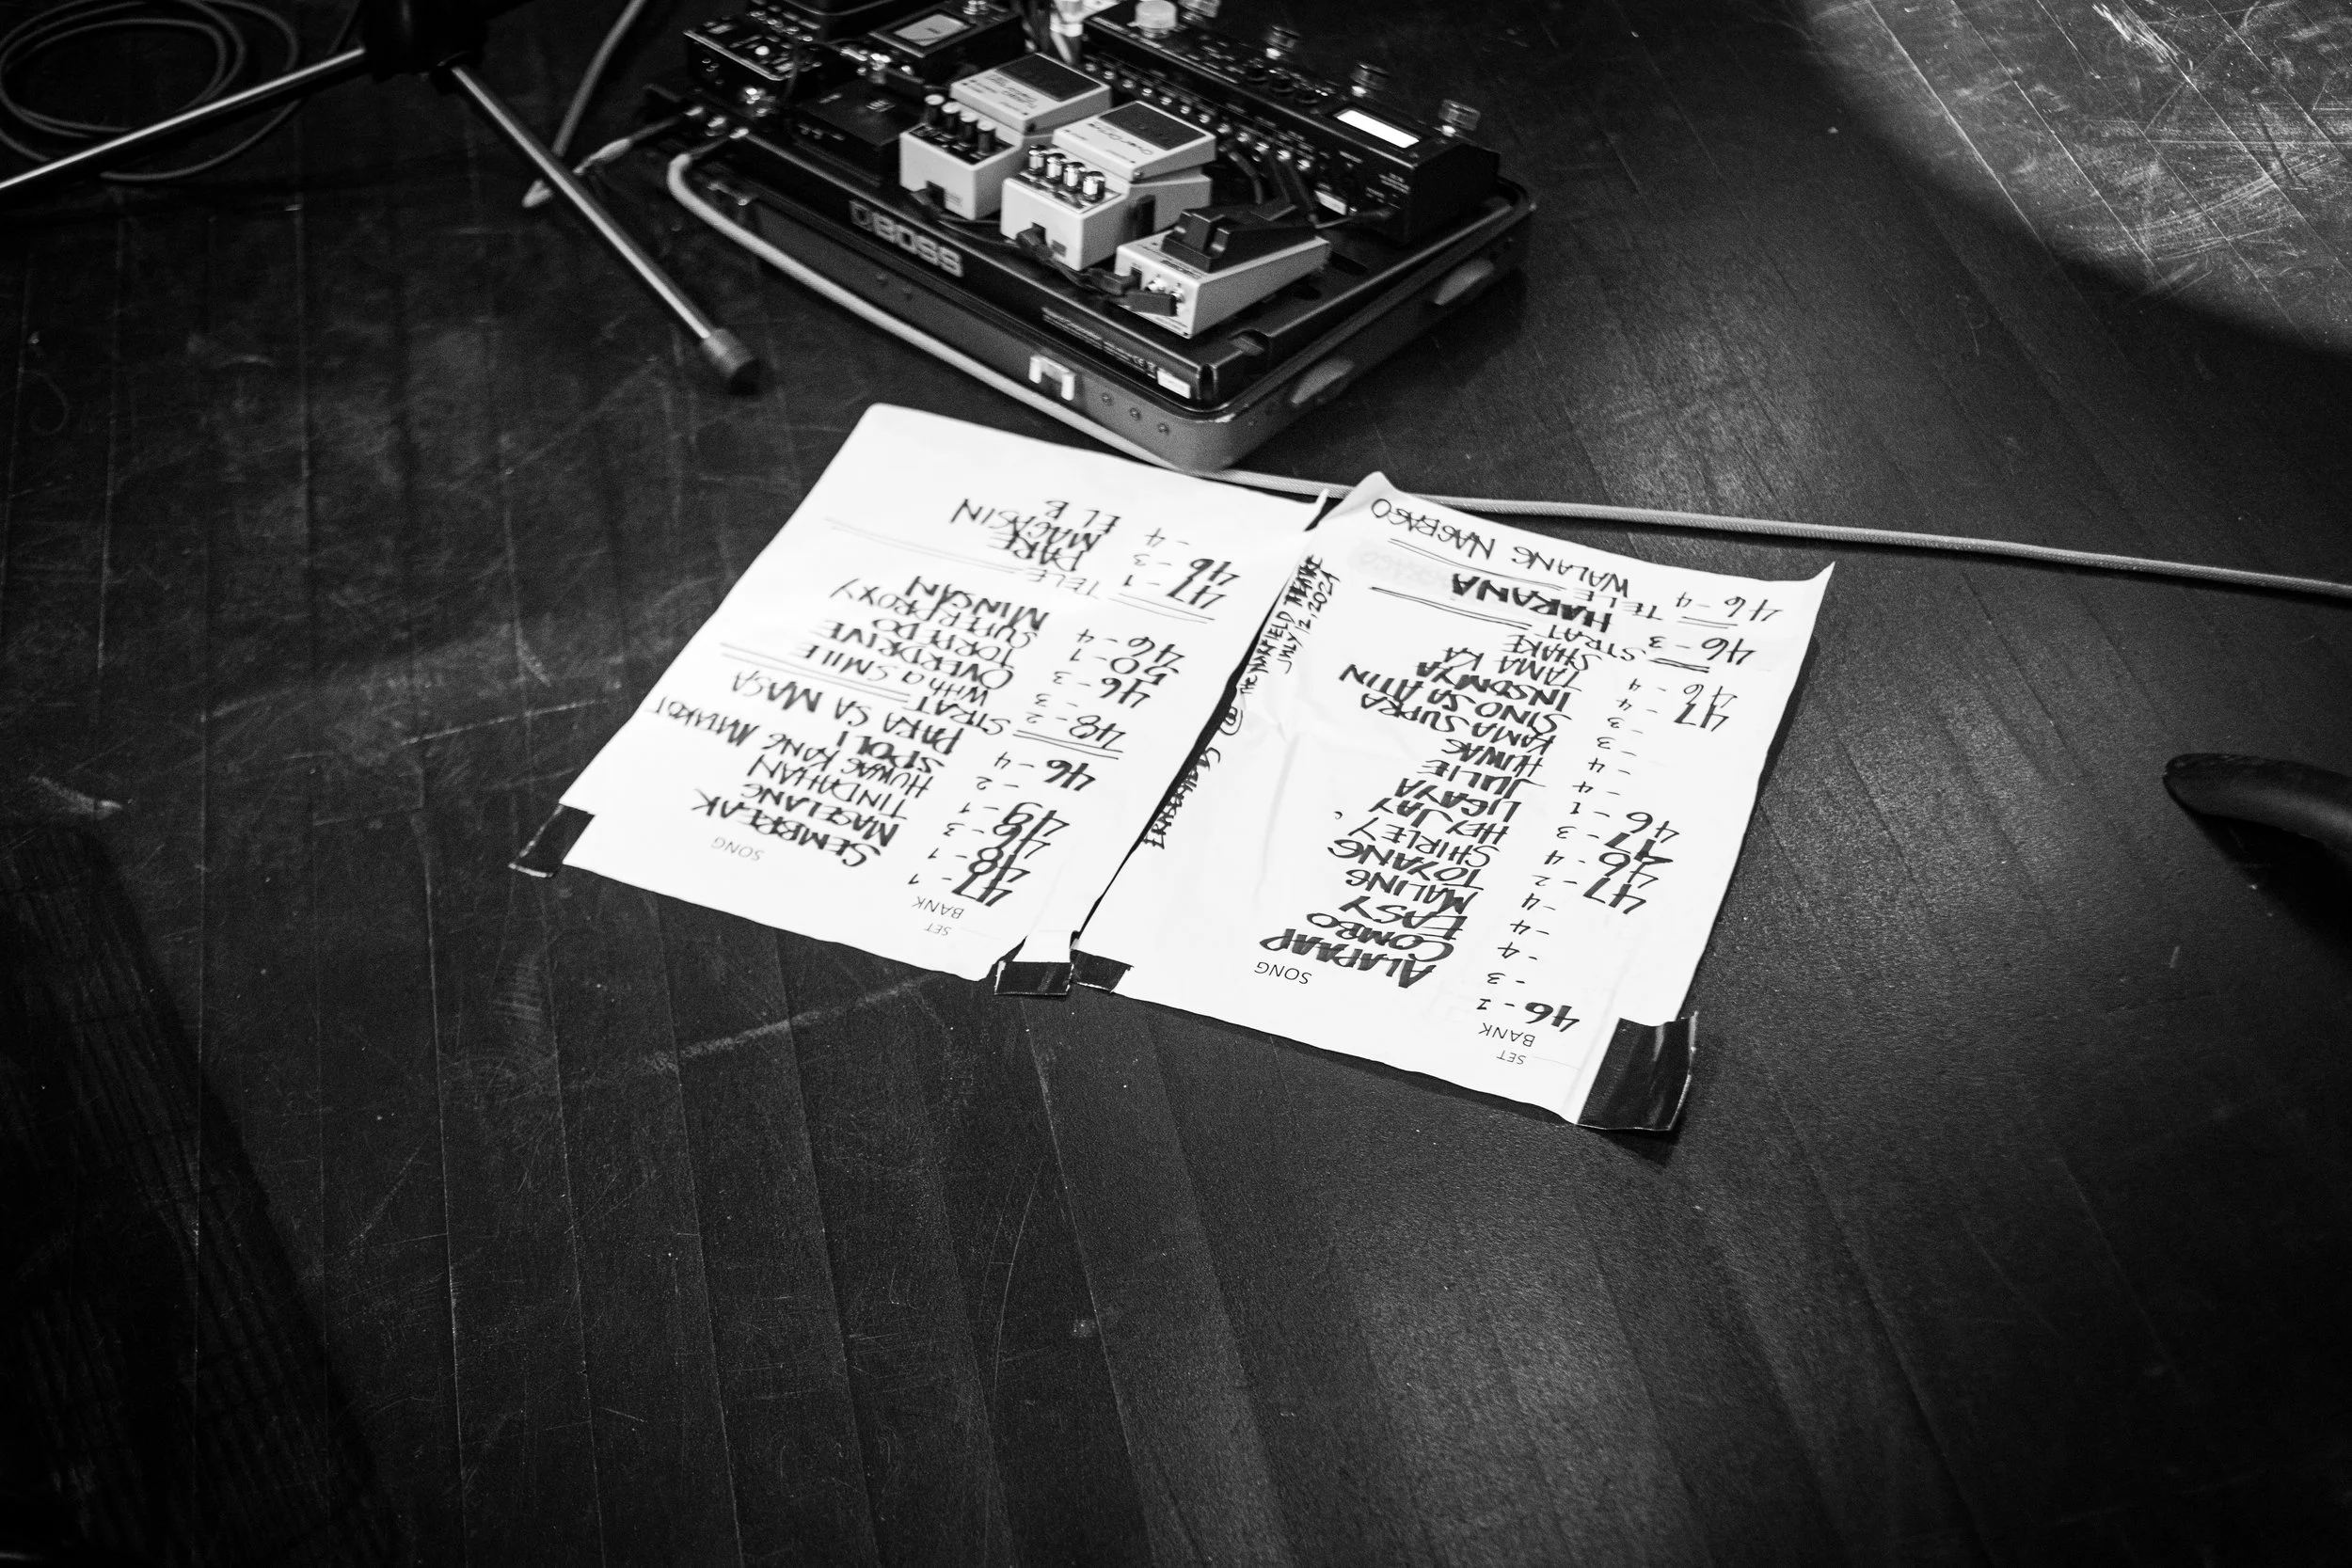 BOSS
SET
BANK SONG
46-2 ALAPAAP
-3 COMBO
-4 EASY
-4 MALING
-4 TOYANG
47-2 SHIRLEY
46-4 HEY JAY
47-3 LIGAYA
46-1 JULIE
-4 HUWAG
-4 KAMA SUPRA
-3 SINO SA ATIN
-3 INSOMYA
47-4 TAMA KA
46-4 SHAKE
STRAT
46-3 HARANA
TELE
46-4 WALANG NAGBAGO
ERASERHEADS @ THE WARFIELD THEATRE
JULY 12, 2024
SET
BANK SONG
47-1 SEMBREAK
48-1 MAGELANG
46-3 TINDAHAN
49-1 HUWAG KANG MATAKOT
-2 SPOLI
46-4 PARA SA MASA
STRAT
48-2 WITH a SMILE
-3 OVERDRIVE
46-3 TORPEDO
50-1 SUPERPROXY
46-4 MINSAN
TELE
47-1 PARE
46-3 MAGASIN
-4 EL B